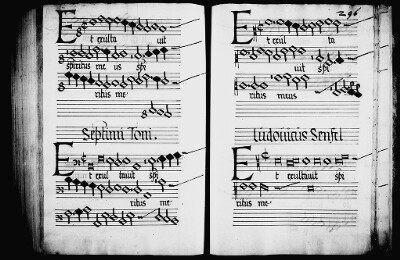 Et exulta uit
spiritus me us spi
ritus me
Septimi Toni.
Et exul tauit spi
ritus me
296
Et exul ta
uit spi
ritus meus
Ludouicus Senfel
Et exultauit spi
ritus me